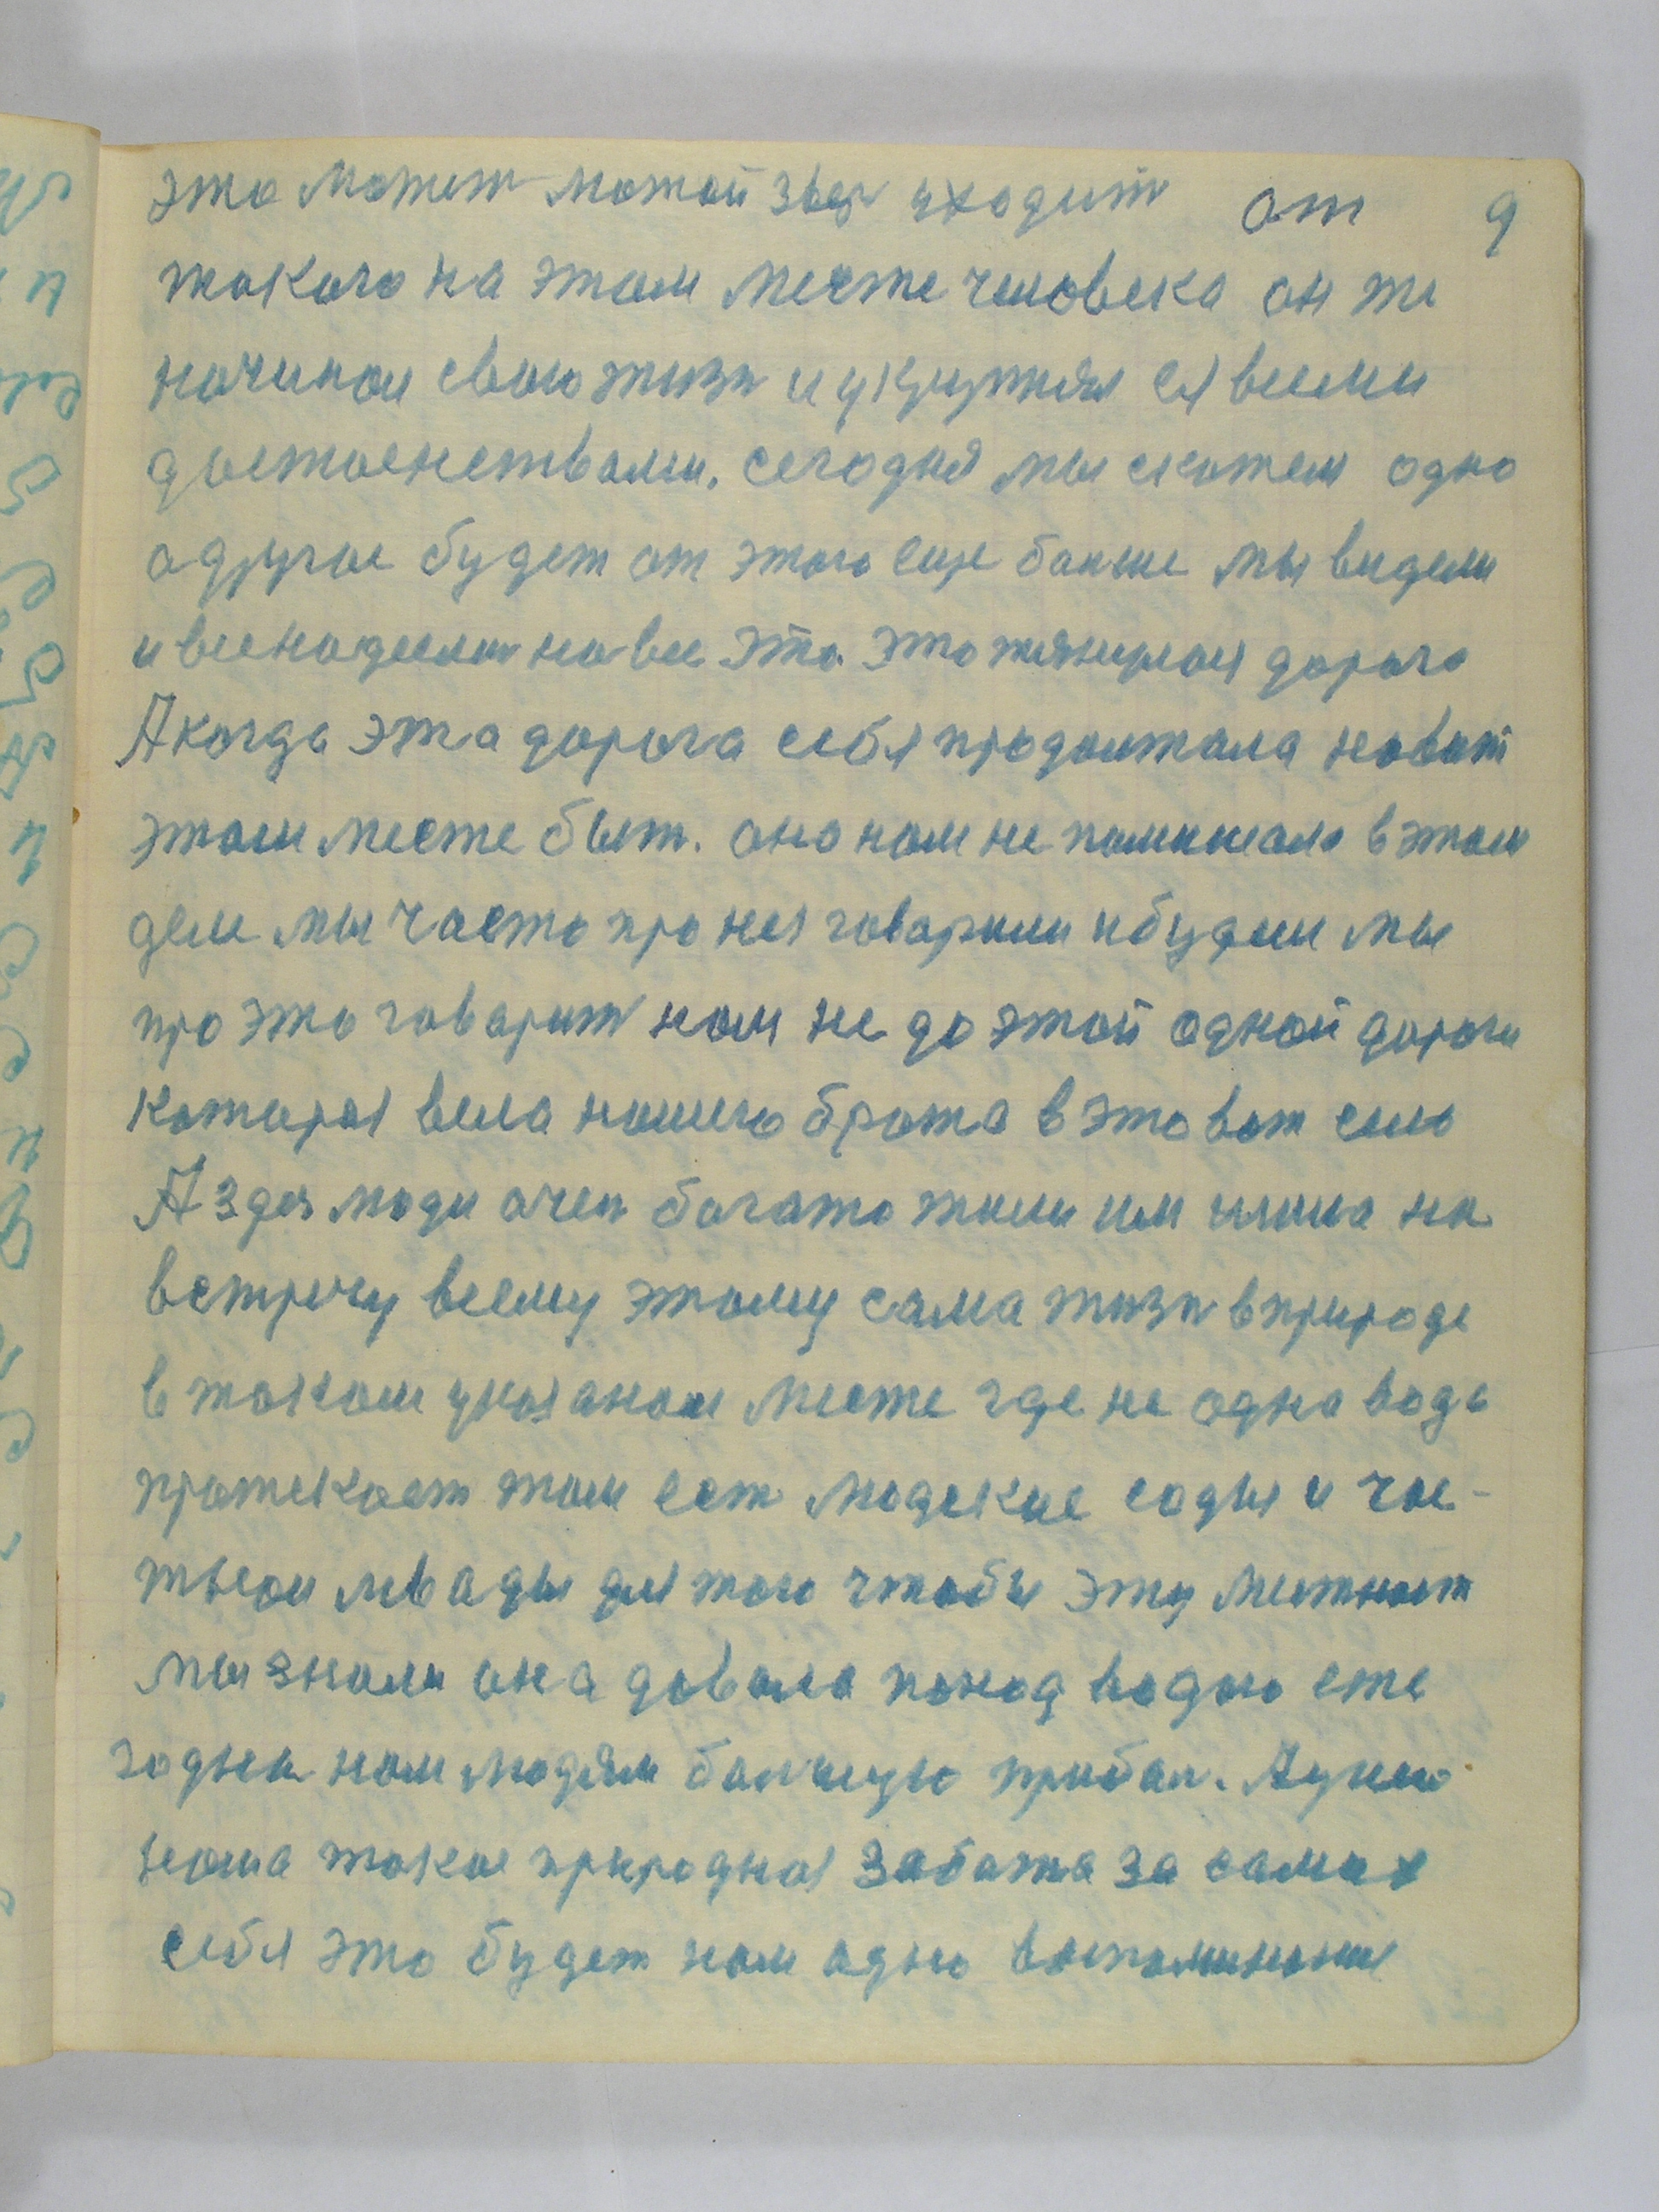 это может мотой звер уходит от 9
токого на этом месте человека он же
начинал свою жизн и украшал ея всеми
достоенствами. сегодня мы скажем одно
а другое будет от этого еще болше мы видели
и все на это это тянулася дорога
А когда эта дорога себя продолжала на вот
этом месте быт. оно нам не помишало в этом
деле мы часто про нея говарили и будим мы
про это говарит нам не до этой одной дороги
которая вела нашего брата в это вот село
А здес люди очен богато жили им ишла на
встречу всему этому сама жизн в природе
в таком указаном месте где не одна вода
протекает там ест людские сады и час-
тьнои левады для того чтобы эту местност
мы знали она давала понад водою эти
годы нам людям болшую прибал. А
наша такая природная забота за самих
себя это будет нам одно воспоминание